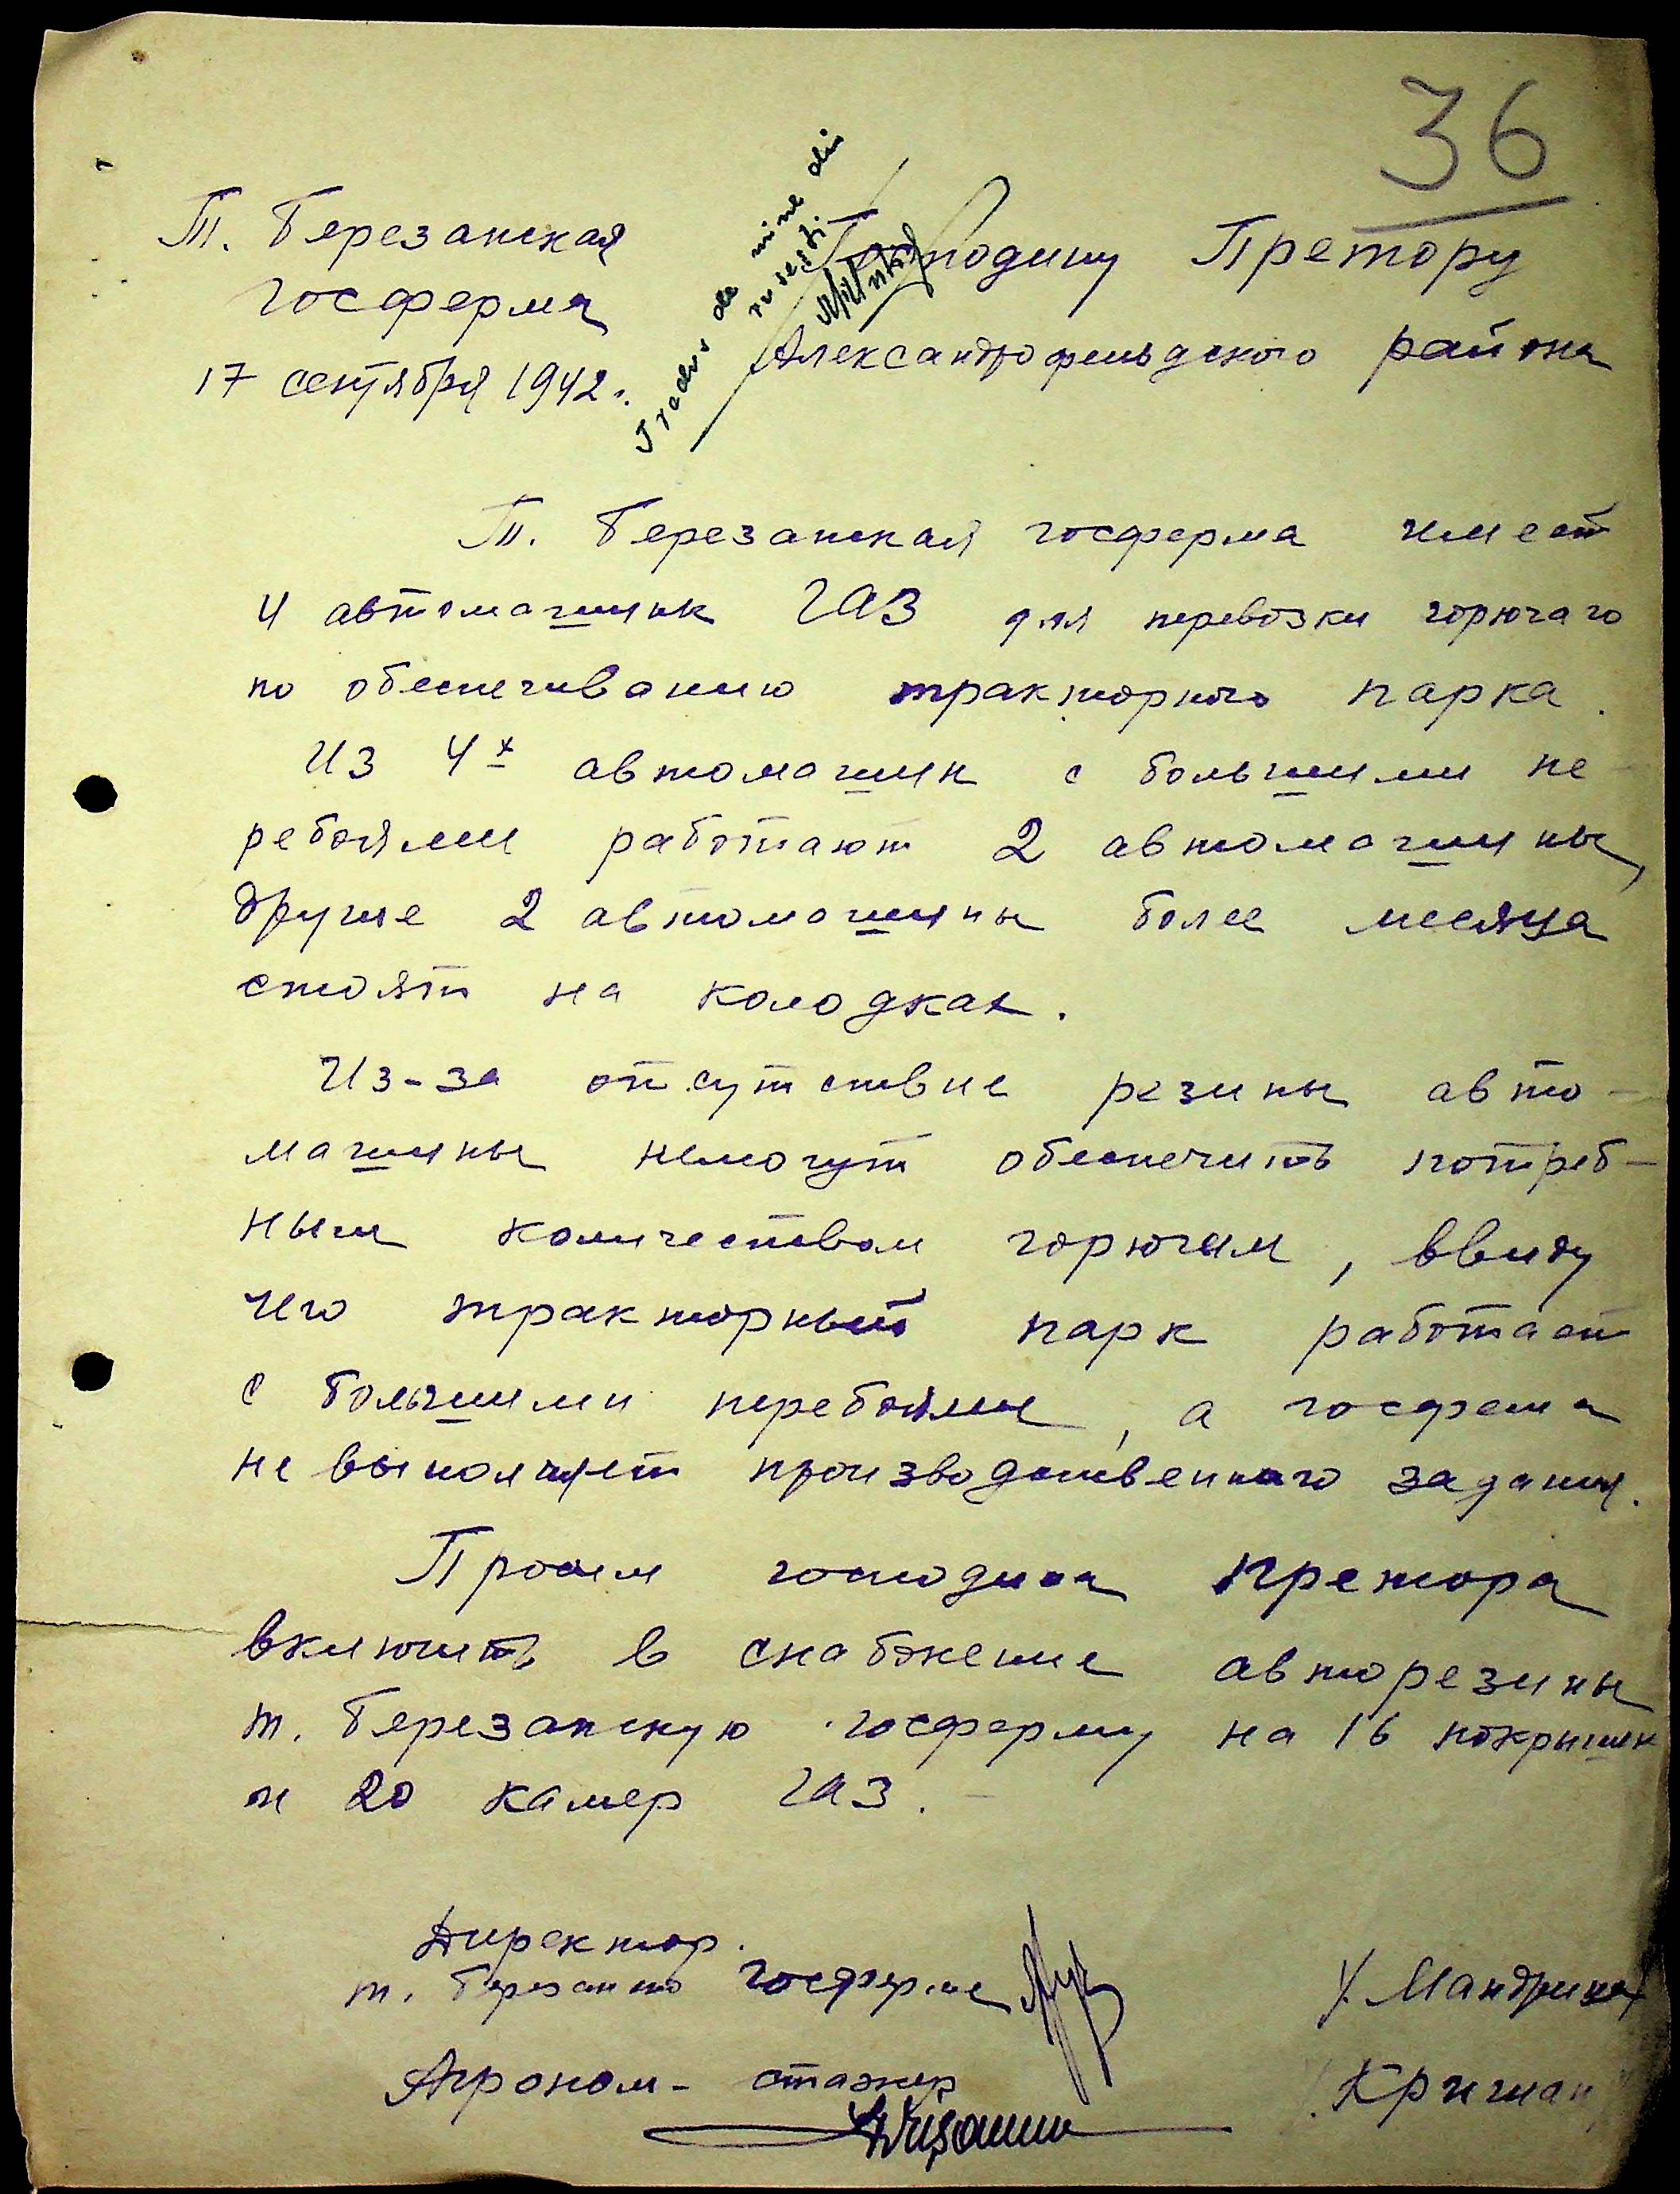 36
Т. Березанская
госферма
17 сентября 1942 г.
Господину Претору
Александрофельдского района
Tradus de mine din
rusești.
Т. Березанская госферма имеет
4 автомашин ГАЗ для перевозки горючаго
по обеспечиванию тракторного парка.
Из 4х автомашин с большими пе-
ребоями работают 2 автомашины,
другие 2 автомашины более месяца
стоят на колодках.
Из-за отсутствие резины авто-
машины немогут обеспечить потреб-
ным количеством горючим, ввиду
чего тракторный парк работает
с большими перебоями, а госфема
не выполняет производственного задания.
Просим господина претора
включить в снабжение авторезины
т. Березанскую госферму на 16 покрышек
и 20 камер ГАЗ.
Директор.
т. Березанко госферме
/. Мандрика/
Агроном-стажер
/. Кришан/